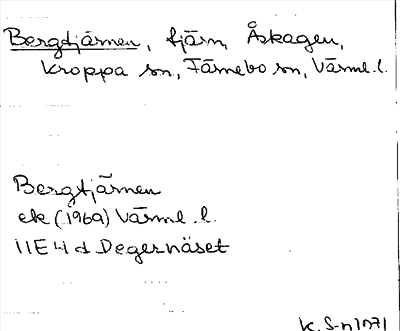 Bergtjärnen, tjärn, Åskagen,
Kroppa sn, Färnebo sn, Värml. l.
Bergtjärnen
ek (1969) Värml. l.
11E 4 d Degernäset
K. S-n 1971